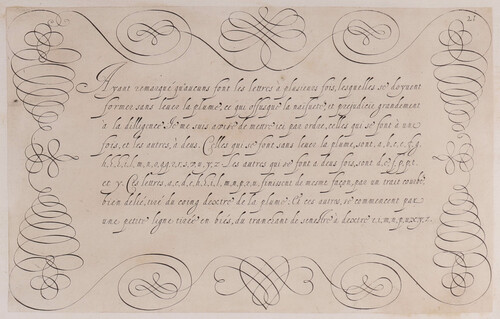 21
Ayant remarqué qu'aucuns font les lettres à plusieurs fois, lesquelles se doyuent
former sans leuer la plume, ce qui offusque la naifueté, et prejudicie grandement
à la dilligence Je me suis aduisé de mettre ici par ordre, celles qui se font à une
fois, et les autres, à deux. Celles qui se font sans leuer la plume, sont, a, b, c, e, g,
h, i, l, m, n, o, q, r, s, u, x, y, z. Les autres qui se font a deux fois, sont d, f, p, t.
et y. Ces lettres, a, c, d, e, h, i, l, m, n, t, u, finissent de mesme façon, par un trait courbé,
bien delié, tiré du coing dextre de la plume. Et ces autres, se commencent par
une petite ligne tirée en biés, du tranchant de senestre à dextre r, i, m, n, p, u, x, y, z.